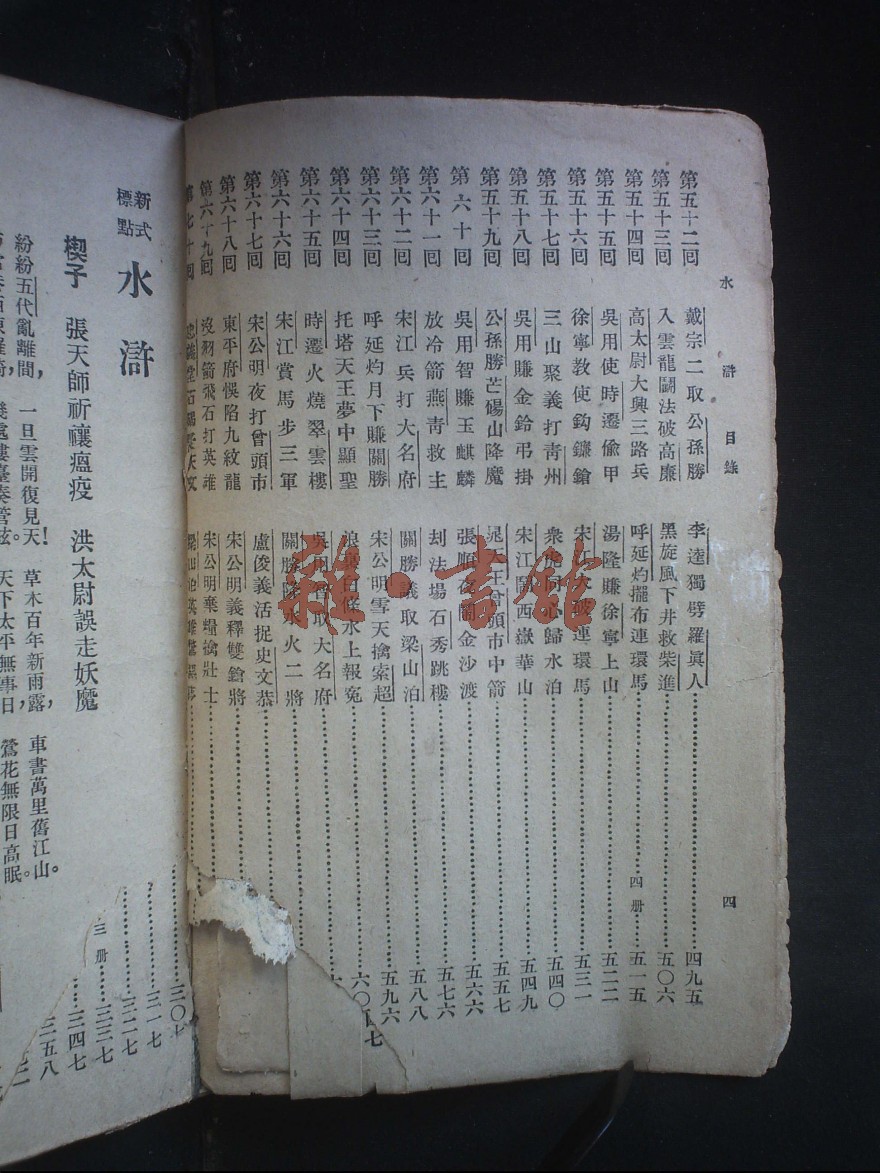 水滸目錄
四
第五十二回 戴宗二取公孫勝 李逵獨劈羅眞人 四九五
第五十三回 入雲龍鬬法破高廉 黑旋風下井救柴進 五〇六
第五十四回 高太尉大興三路兵 呼延灼擺布連環馬 四册 五一五
第五十五回 吳用使時遷偷甲 湯隆賺徐寧上山 五二二
第五十六回 徐寧教使鈎鐮鎗 宋江大破連環馬 五三一
第五十七回 三山聚義打青州 衆虎同心歸水泊 五四〇
第五十八回 吳用賺金鈴弔掛 宋江鬧西嶽華山 五四九
第五十九回 公孫勝芒碭山降魔 晁天王曾頭市中箭 五五七
第六十回 吳用智賺玉麒麟 張順夜鬧金沙渡 五六六
第六十一回 放冷箭燕青救主 刦法場石秀跳樓 五七六
第六十二回 宋江兵打大名府 關勝議取梁山泊 五八八
第六十三回 呼延灼月下賺關勝 宋公明雪天擒索超 五九六
第六十四回 托塔天王夢中顯聖 浪裏白條水上報冤 六〇
第六十五回 時遷火燒翠雲樓 吳用智取大名府
第六十六回 宋江賞馬步三軍 關勝降水火二將
第六十七回 宋公明夜打曾頭市 盧俊義活捉史文恭
第六十八回 東平府悞陷九紋龍 宋公明義釋雙鎗將
第六十九回 沒羽箭飛石打英雄 宋公明棄糧擒壯士
第七十回 忠義堂石碣受天文 梁山泊英雄
雜·書館
新式標點 水滸
楔子 張天師祈禳瘟疫 洪太尉誤走妖魔
紛紛五代亂離間， 一旦雲開復見天！ 草木百年新雨露， 車書萬里舊江山。
樓臺奏管絃。 天下太平無事日 鶯花無限日高眠。
三〇七
三一七
三二七
三册 三三七
三四七
三五八